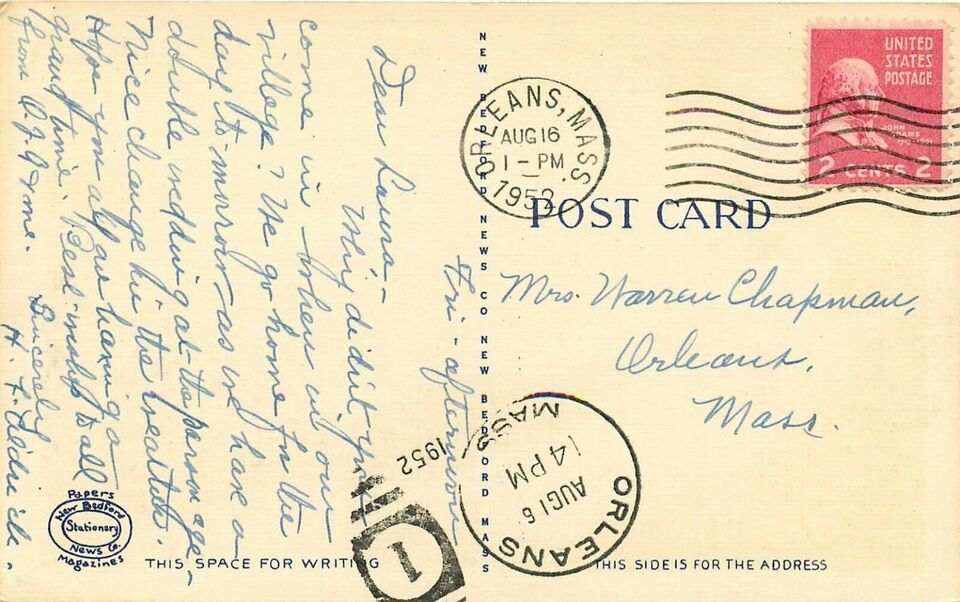 Fri - afternoon
Dear Laura -
Why didn't you
come in when in our
village? We go home for the
day to-morrow - as we have a
double wedding at the parsonage -
Nice change in the weather.
Hope you all are having a
grand time. Best wishes to all
from
Sincerely
H. F.
Papers
New Bedford
Stationery
News Co.
Magazines
THIS SPACE FOR WRITING
NEW BEDFORD NEWS CO NEW BEDFORD MASS
ORLEANS, MASS.
AUG 16
1 - PM
1952
UNITED
STATES
POSTAGE
JOHN
ADAMS
2 CENTS 2
POST CARD
Mrs. Warren Chapman,
Orleans,
Mass.
ORLEANS
MASS
AUG 16
4 PM
1952
1
THIS SIDE IS FOR THE ADDRESS